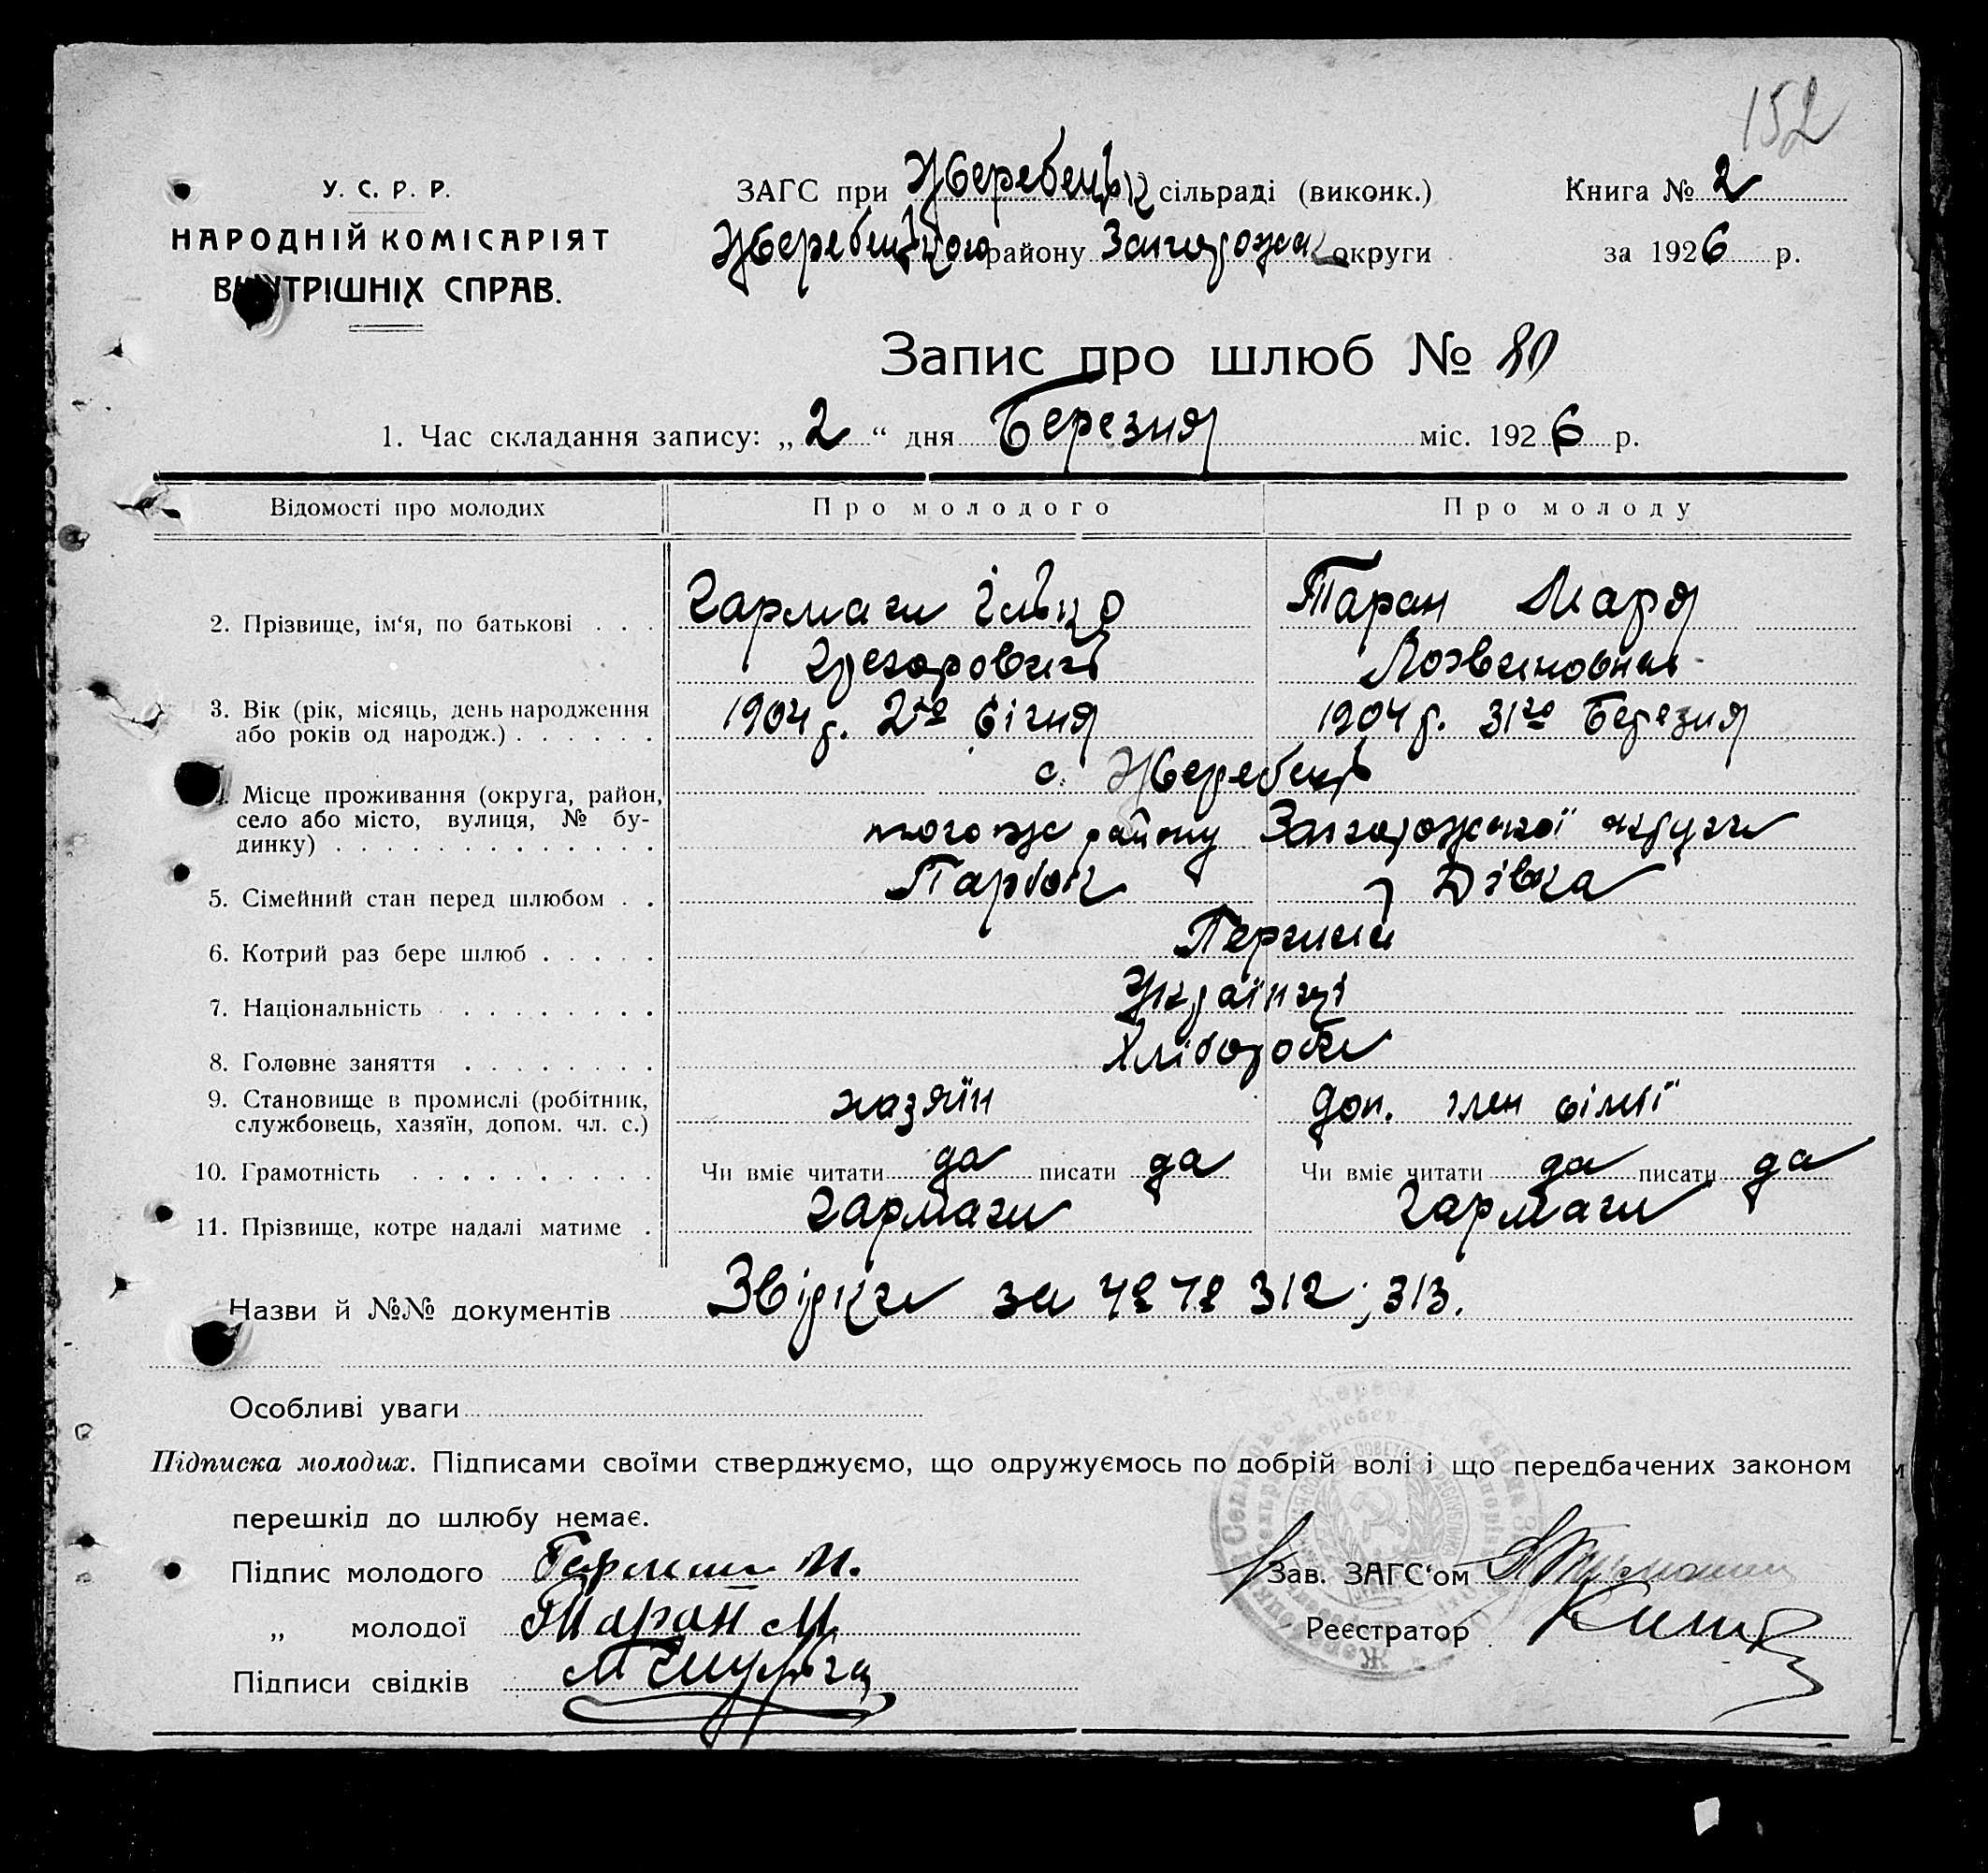 152
У. С. Р. Р.
НАРОДНІЙ КОМІСАРІЯТ
ВНУТРІШНІХ СПРАВ.
ЗАГС при Жеребецьк сільраді (виконк.)
Жеребецького району Запорожськ округи
Книга № 2
за 1926 р.
Запис про шлюб № 80
1. Час складання запису: „ 2 “ дня Березня міс. 1926 р.
Відомості про молодих Про молодого Про молоду
2. Прізвище, ім‘я, по батькові . . . Гармаги Ілько Таран Маря
Грегорович Логвиновна
3. Вік (рік, місяць, день народження
або років од народж.) . . . . . . 1904 р. 2го Січня 1904 р. 31го Березня
с. Жеребець
4. Місце проживання (округа, район,
село або місто, вулиця, № бу-
динку) . . . . . . . . . . . . . того ж району Запорожської округи
5. Сімейний стан перед шлюбом . . Парубок Дівка
6. Котрий раз бере шлюб . . . . . Перший
7. Національність . . . . . . . . Українці
8. Головне заняття . . . . . . . Хлібороби
9. Становище в промислі (робітник,
службовець, хазяїн, допом. чл. с.) хазяїн доп. член сімії
10. Грамотність . . . . . . . . . . Чи вміє читати да писати да Чи вміє читати да писати да
11. Прізвище, котре надалі матиме . Гармаги Гармаги
Назви й №№ документів Звідки за №№ 312; 313.
Особливі уваги
Підписка молодих. Підписами своїми стверджуємо, що одружуємось по добрій волі і що передбачених законом
перешкід до шлюбу немає.
Підпис молодого Гармаш И.
„ молодої Таран М
Підписи свідків
Зав. ЗАГС‘ом
Реєстратор